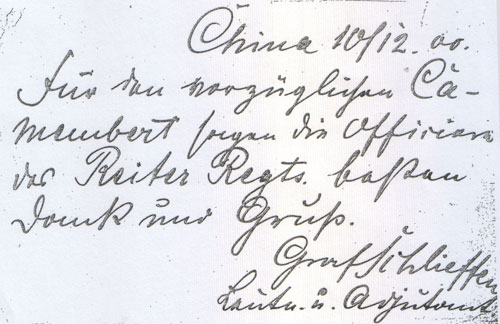 China 10/12. 00.
Für den vorzüglichen Ca-
membert sagen die Officiere
des Reiter Regts. besten
Dank und Gruß.
Graf Schlieffen
Leutn. u. Adjutant